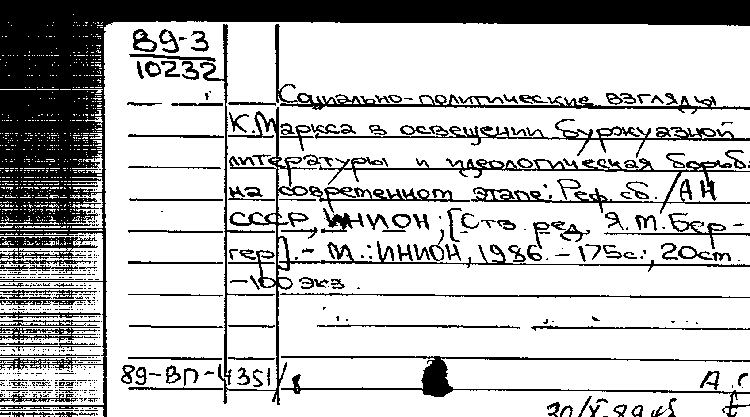 89-3
10232
Социально-политические взгляды
К.Маркса в освещении буржуазной
литературы и идеологическая борьб
на современном этапе: Реф. сб. / АН
СССР, ИНИОН; [Отв. ред. Я.М.Бер-
гер]. - М.: ИНИОН, 1986. - 175с.; 20см.
-100 экз.
89-ВП-4351/8
А.С